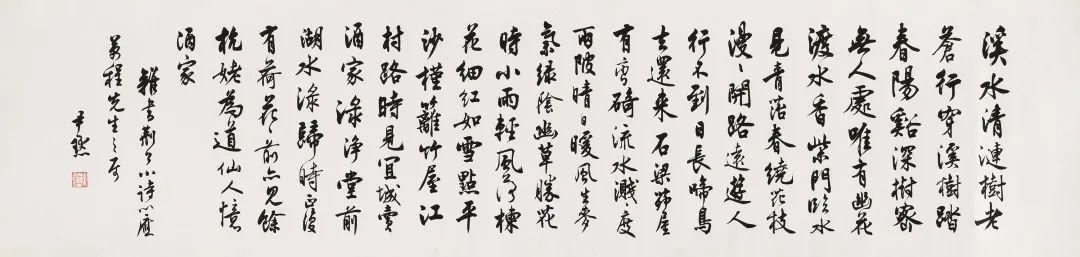 溪水清漣樹老
蒼行穿溪樹踏
春陽谿深樹密
無人處唯有幽花
渡水香柴門臨水
見青苔春繞花枝
漫々開路遠遊人
行不到日長啼鳥
去還来石梁茅屋
有彎碕流水濺々度
兩陂晴日暖風生麥
氣綠陰幽草勝花
時小雨輕風落楝
花細紅如雪點平
沙槿籬竹屋江
村路時見宜城賣
酒家淥淨堂前
湖水淥歸時正復
有荷花花前亦見餘
杭姥為道仙人憶
酒家
雜書荊公小詩以應
程先生之屬
尹默